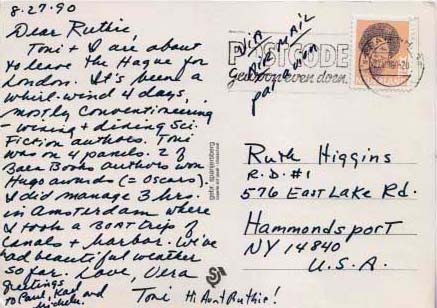 8-27-90
Dear Ruthie,
Toni + I are about
to leave the Hague for
London. It's been a
whirl-wind 4 days,
mostly Conventioneering
- wining + dining Sci-
Fiction authors. Toni
was on 4 panels. 2 of
Baen Books authors won
Hugo awards (= Oscars).
I did manage 3 hrs.
in Amsterdam where
I took a BOAT Trip of
Canals + harbor. We've
had beautiful weather
so far. Love, Vera
greetings
to Paul, Karl and
Michele.
Toni Hi Aunt Ruthie!
VIA
AIR MAIL
par avion
POSTCODE
Gewoon even doen.
Ruth Higgins
R.D. #1
576 East Lake Rd.
Hammondsport
NY 14840
U.S.A.